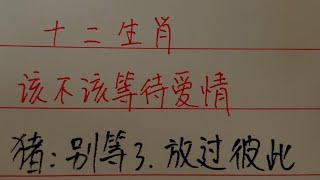 十二生肖
该不该等待爱情
猪:别等了.放过彼此